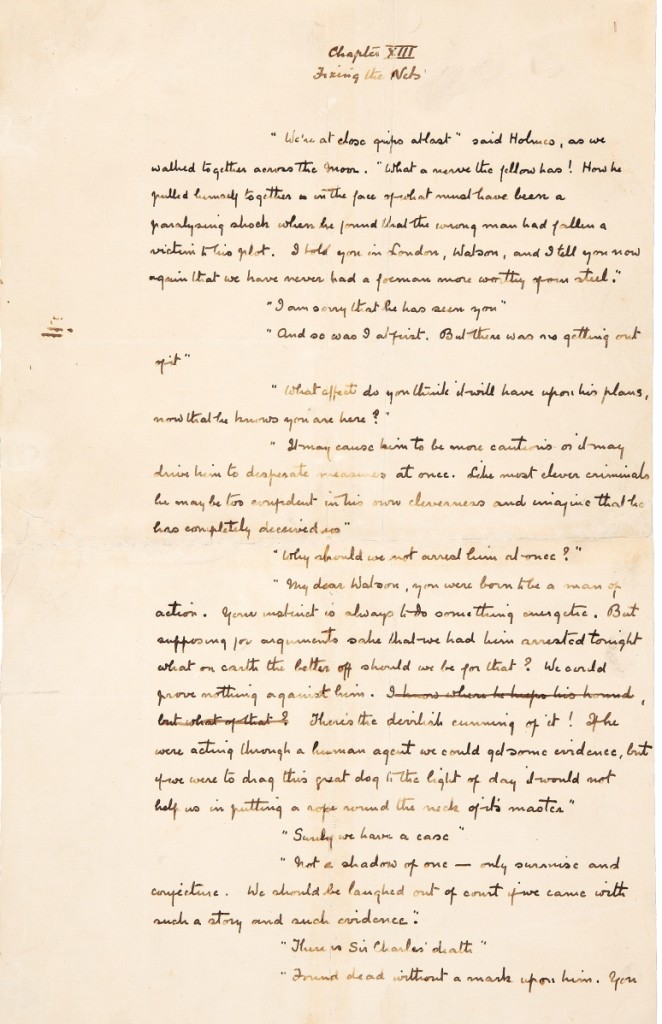 1
Chapter XIII
Fixing the Nets
"We're at close grips at last" said Holmes, as we
walked together across the moor. "What a nerve the fellow has! How he
pulled himself together in the face of what must have been a
paralysing shock when he found that the wrong man had fallen a
victim to his plot. I told you in London, Watson, and I tell you now
again that we have never had a foeman more worthy of our steel."
"I am sorry that he has seen you"
"And so was I at first. But there was no getting out
of it"
"What effect do you think it will have upon his plans,
now that he knows you are here?"
"It may cause him to be more cautious or it may
drive him to desperate measures at once. Like most clever criminals
he may be too confident in his own cleverness and imagine that he
has completely deceived us"
"Why should we not arrest him at once?"
"My dear Watson, you were born to be a man of
action. Your instinct is always to do something energetic. But
supposing for arguments sake that we had him arrested tonight
what on earth the better off should we be for that? We could
prove nothing against him. I know where he keeps his hound,
but what of that? There's the devilish cunning of it! If he
were acting through a human agent we could get some evidence, but
if we were to drag this great dog to the light of day it would not
help us in putting a rope round the neck of its master"
"Surely we have a case"
"Not a shadow of one — only surmise and
conjecture. We should be laughed out of court if we came with
such a story and such evidence."
"There is Sir Charles' death"
"Found dead without a mark upon him. You